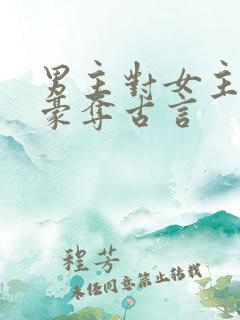 男主對女主
豪奪古言
程芳
未经同意禁止转载